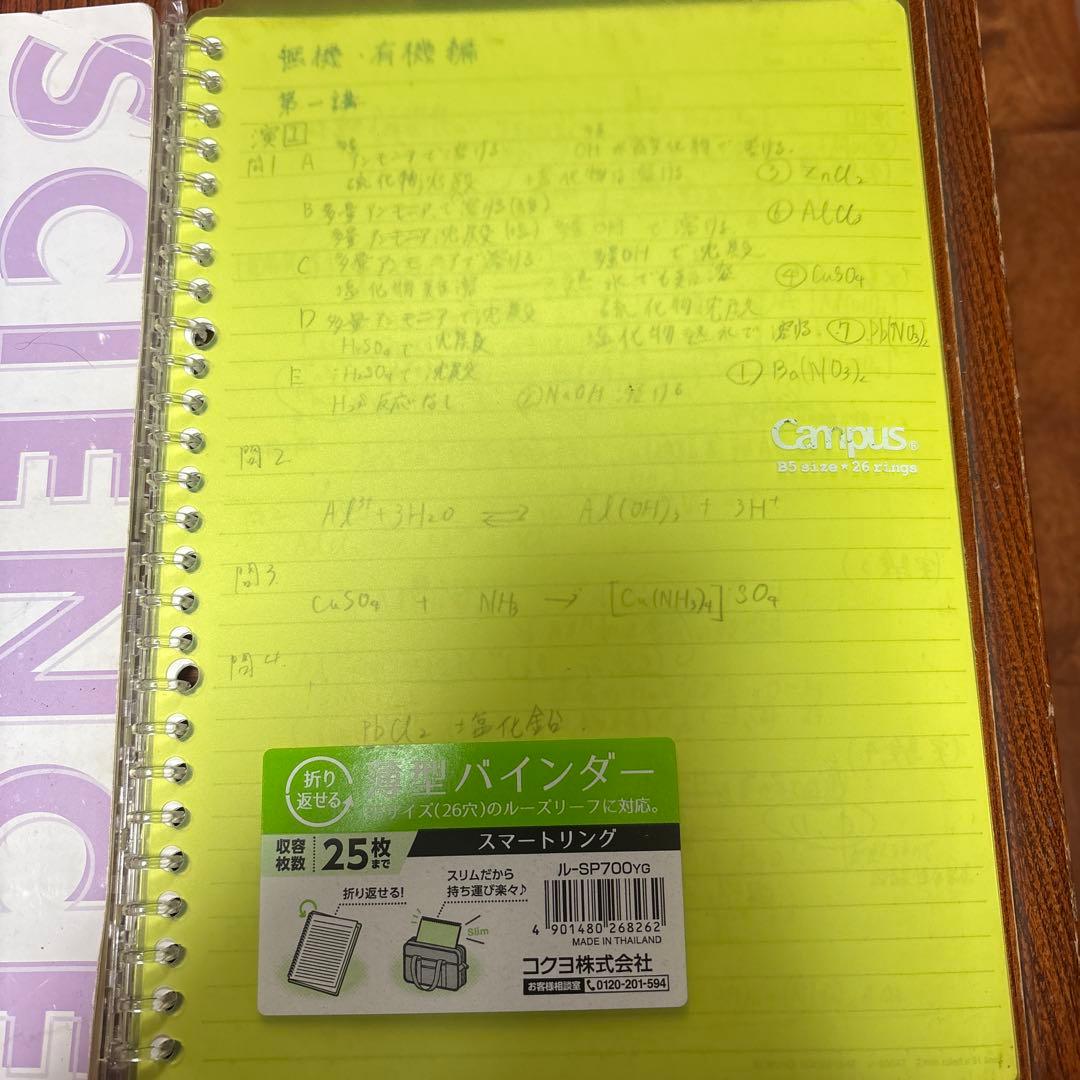 SCIENCE
無機・有機編
第一講
演1
問1 A アンモニアで溶ける OH で溶ける
硫化物沈殿 塩化物は溶ける ③ ZnCl₂
B 多量アンモニアで溶ける
多量アンモニア沈殿 多量OHで溶ける ⑥ AlCl₃
C 多量アンモニアで溶ける 多量OHで沈殿
塩化物 熱水でも ④ CuSO₄
D 多量アンモニアで沈殿 硫化物沈殿
H₂SO₄で沈殿 塩化物熱水で溶ける ⑦ Pb(NO₃)₂
E H₂SO₄で沈殿 ① Ba(NO₃)₂
H₂S反応なし ②NaOH 溶ける
Campus®
B5 size★26 rings
問2
Al³⁺+3H₂O ⇌ Al(OH)₃ + 3H⁺
問3
CuSO₄ + NH₃ → [Cu(NH₃)₄]SO₄
問4
PbCl₂ 塩化鉛
折り返せる 薄型バインダー
イズ(26穴)のルーズリーフに対応。
スマートリング
収容枚数 25枚まで
ル-SP700YG
折り返せる!
スリムだから
持ち運び楽々♪
Slim
4 901480 268262
MADE IN THAILAND
コクヨ株式会社
お客様相談室 0120-201-594